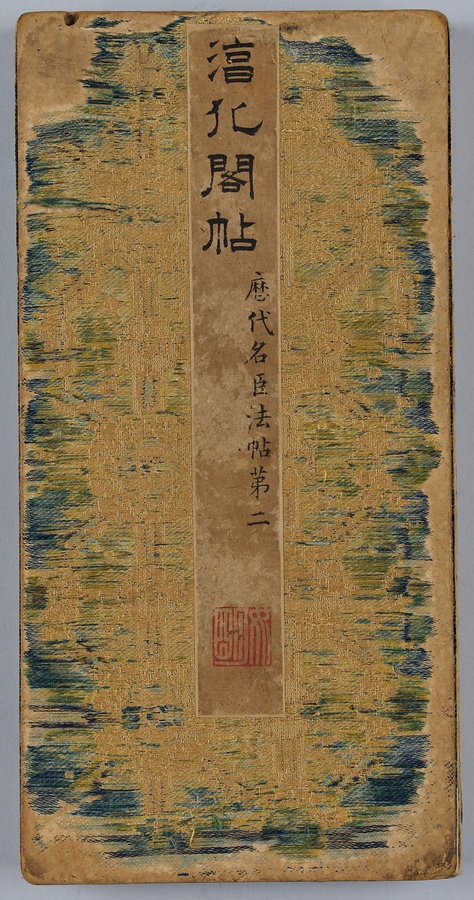 淳化閣帖
歷代名臣法帖第二